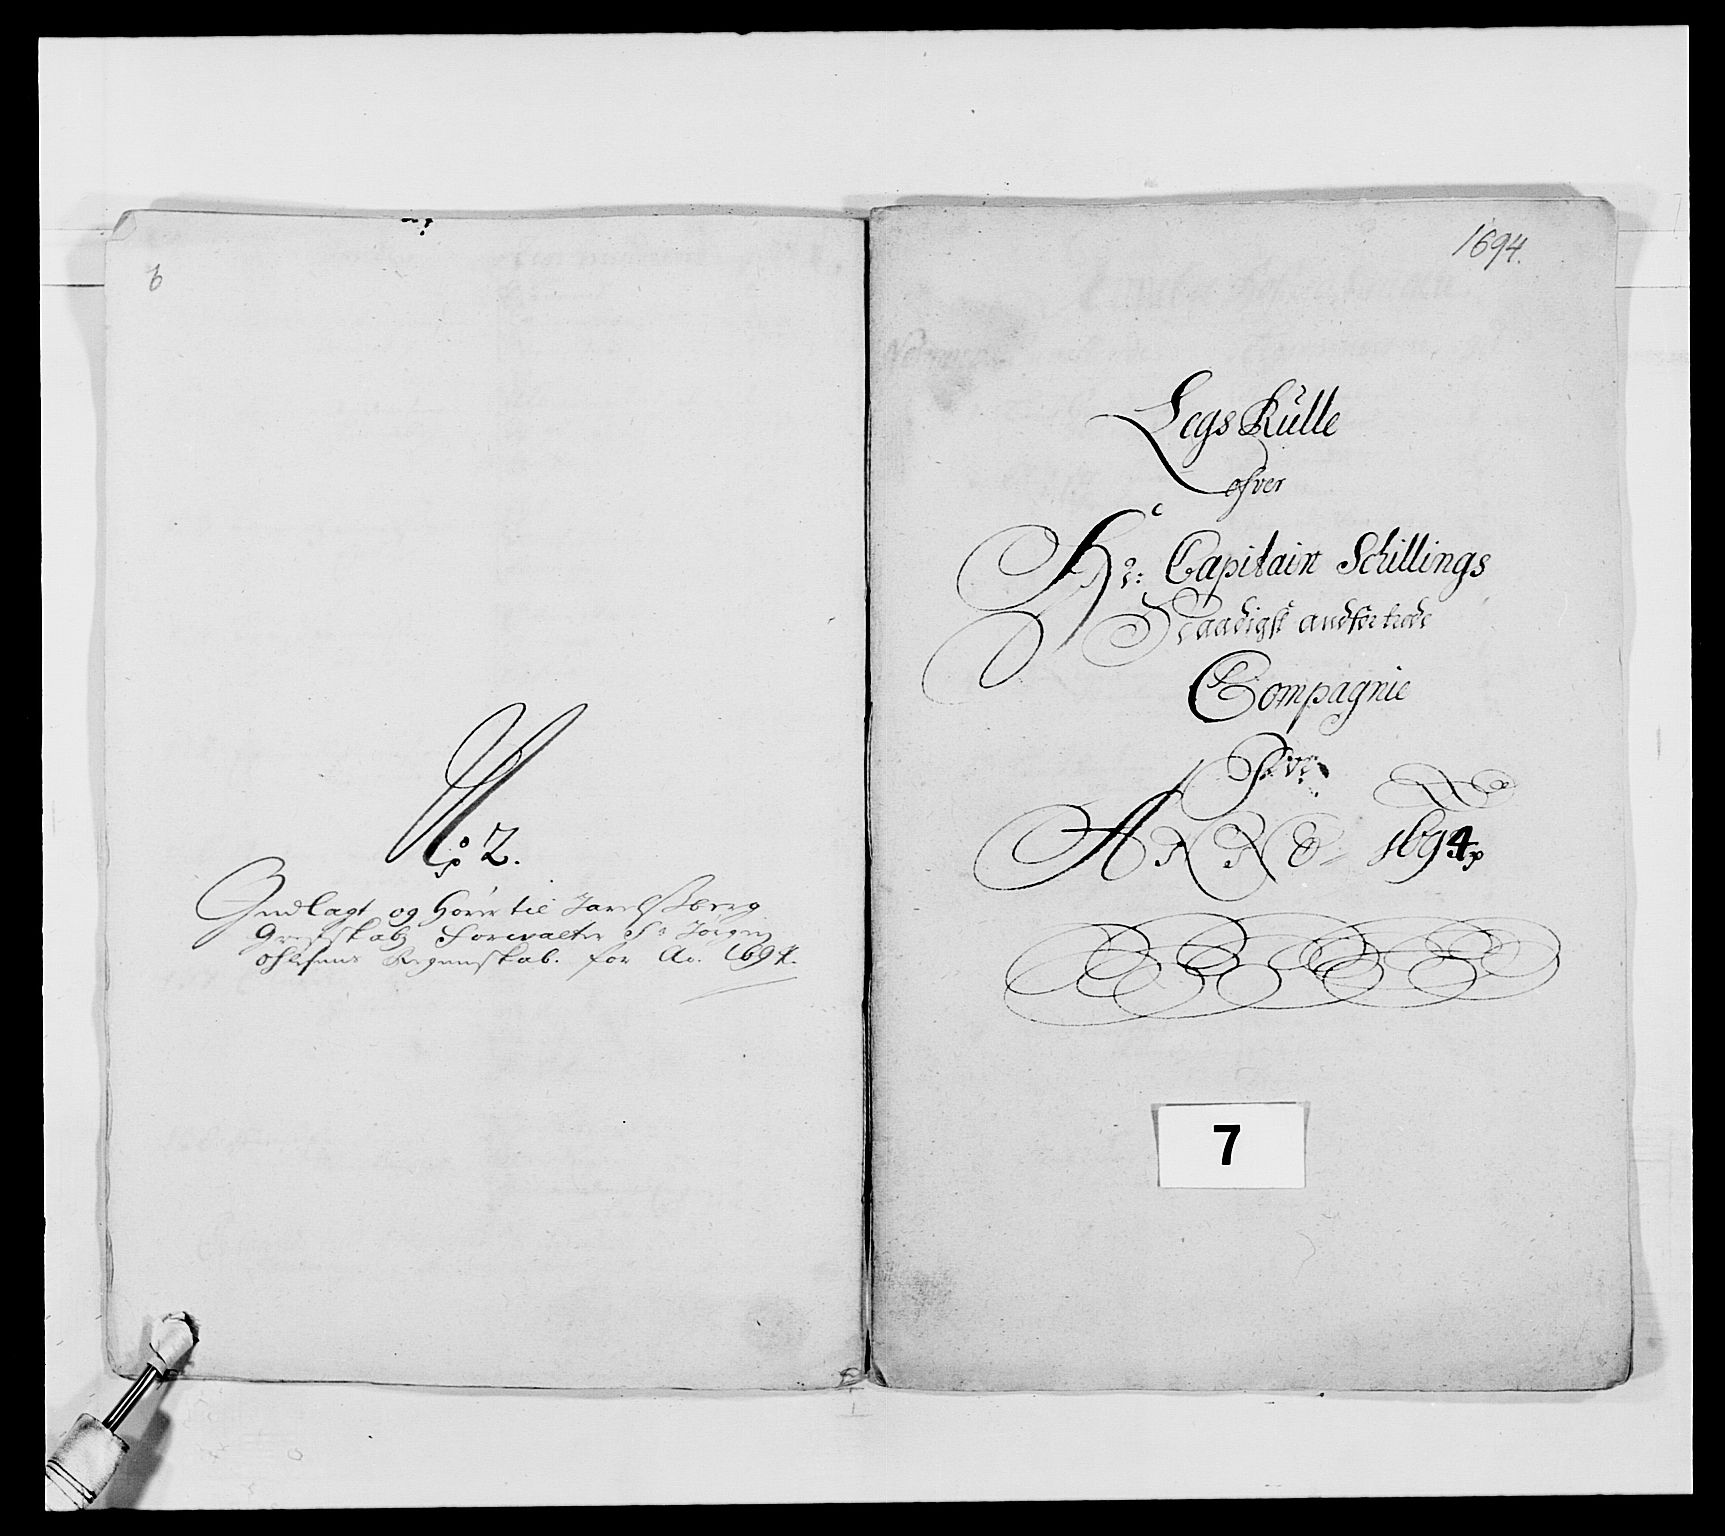 6
No: 2.
Indlagt og hörer til Jarelsberg
Grefskabs Forwalter Sr Jörgen
Ohlsens Regenskab. for Ao. 1694.
1694.
Legs Rulle
ofver
Hr: Capitain Schillings
Naadigst andfortrode
Compagnie
ANNO 1694
7